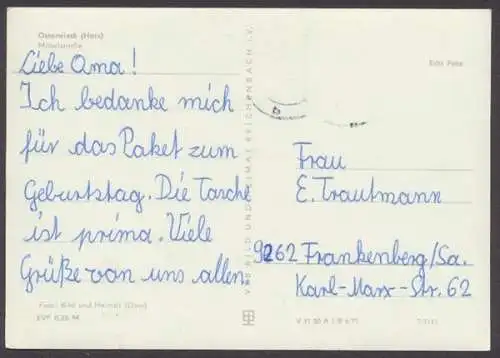 Osterwieck (Harz)
Mittelstraße
Liebe Oma!
Ich bedanke mich
für das Paket zum
Geburtstag. Die Tasche
ist prima. Viele
Grüße von uns allen.
Foto: Bild und Heimat
EVP 0,25 M
VEB BILD UND HEIMAT REICHENBACH I.V.
Echt Foto
Frau
E. Trautmann
9262 Frankenberg/Sa.
Karl-Marx-Str. 62